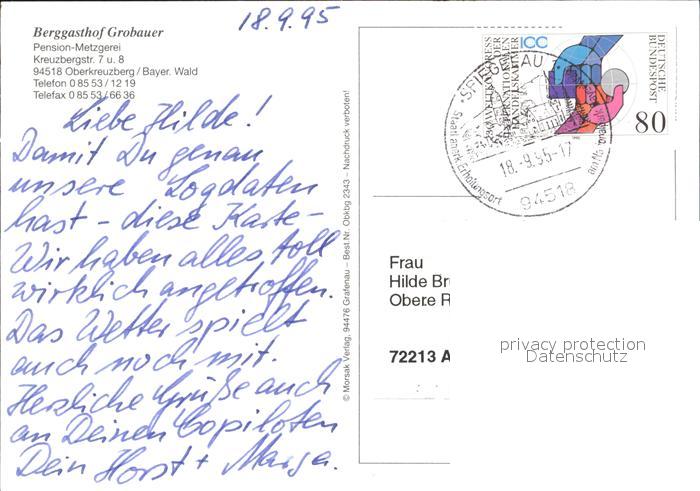 18.9.95
Berggasthof Grobauer
Pension-Metzgerei
Kreuzbergstr. 7 u. 8
94518 Oberkreuzberg / Bayer. Wald
Telefon 0 85 53 / 12 19
Telefax 0 85 53 / 66 36
Liebe Hilde!
Damit Du genau
unsere Logdaten
hast – diese Karte –
Wir haben alles toll
wirklich angetroffen.
Das Wetter spielt
auch noch mit.
Herzliche Grüße auch
an Deinen Copiloten
Dein Horst + Marga.
© Morsak Verlag, 94476 Grafenau – Best.Nr. Obkbg 2343 – Nachdruck verboten!
ICC
DEUTSCHE
BUNDESPOST
80
SPIEGELAU
18.-9.95-17
94518
Staatl anerk Erholungsort
Frau
Hilde Br
Obere R
72213 A
privacy protection
Datenschutz